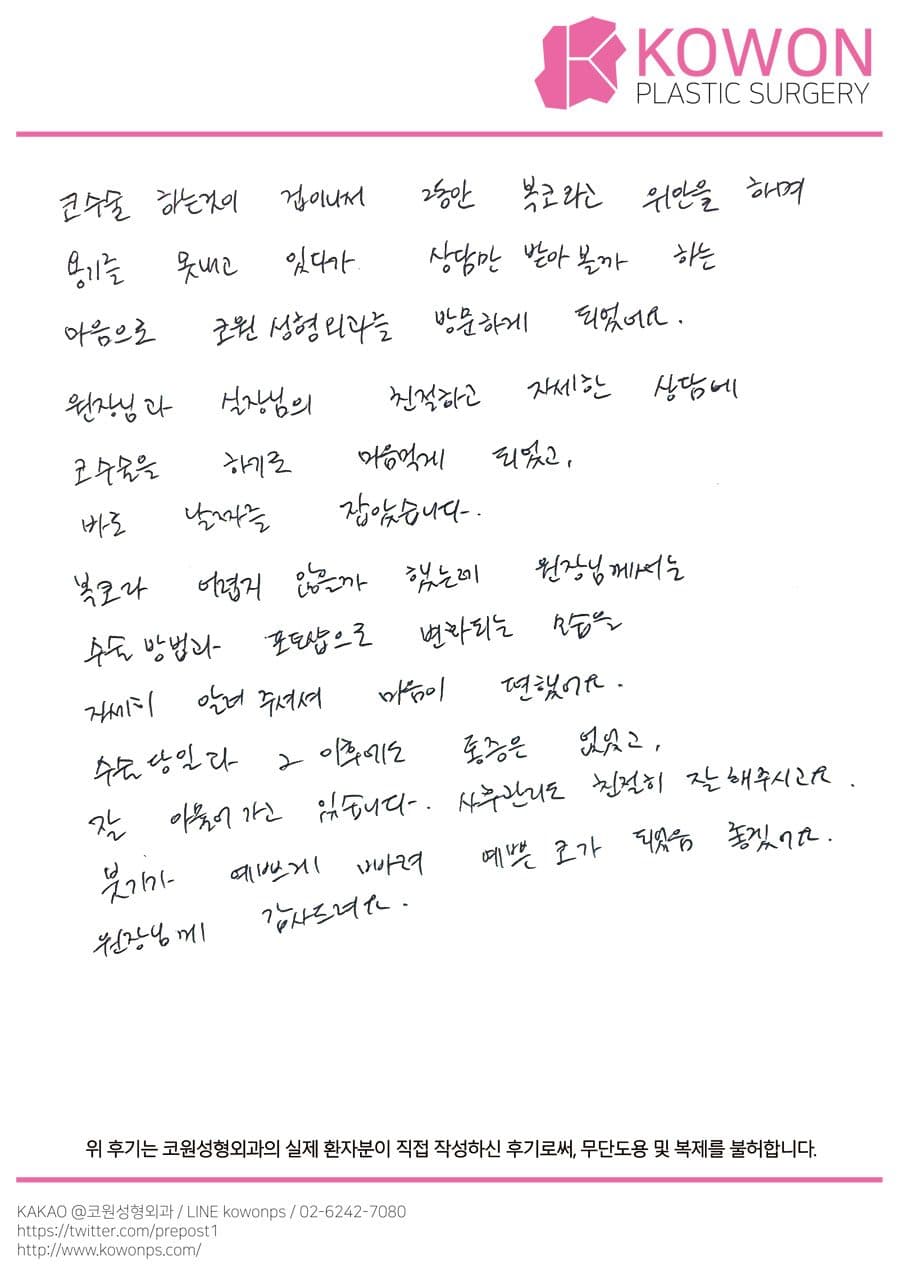 KOWON
PLASTIC SURGERY
코수술 하는것이 겁이나서 그동안 복코라는 위안을 하며
용기를 못내고 있다가 상담만 받아 볼까 하는
마음으로 코원 성형외과를 방문하게 되었어요.
원장님과 실장님의 친절하고 자세한 상담에
코수술을 하기로 마음먹게 되었고,
바로 날짜를 잡았습니다.
복코라 어렵지 않을까 했는데 원장님께서는
수술 방법과 포토샵으로 변화되는 모습을
자세히 알려 주셔서 마음이 편했어요.
수술 당일과 그 이후에도 통증은 없었고,
잘 아물어 가고 있습니다. 사후관리도 친절히 잘 해주시고요.
붓기가 예쁘게 빠져 예쁜 코가 되었음 좋겠어요.
원장님께 감사드려요.
위 후기는 코원성형외과의 실제 환자분이 직접 작성하신 후기로써, 무단도용 및 복제를 불허합니다.
KAKAO @코원성형외과 / LINE kowonps / 02-6242-7080
https://twitter.com/prepost1
http://www.kowonps.com/